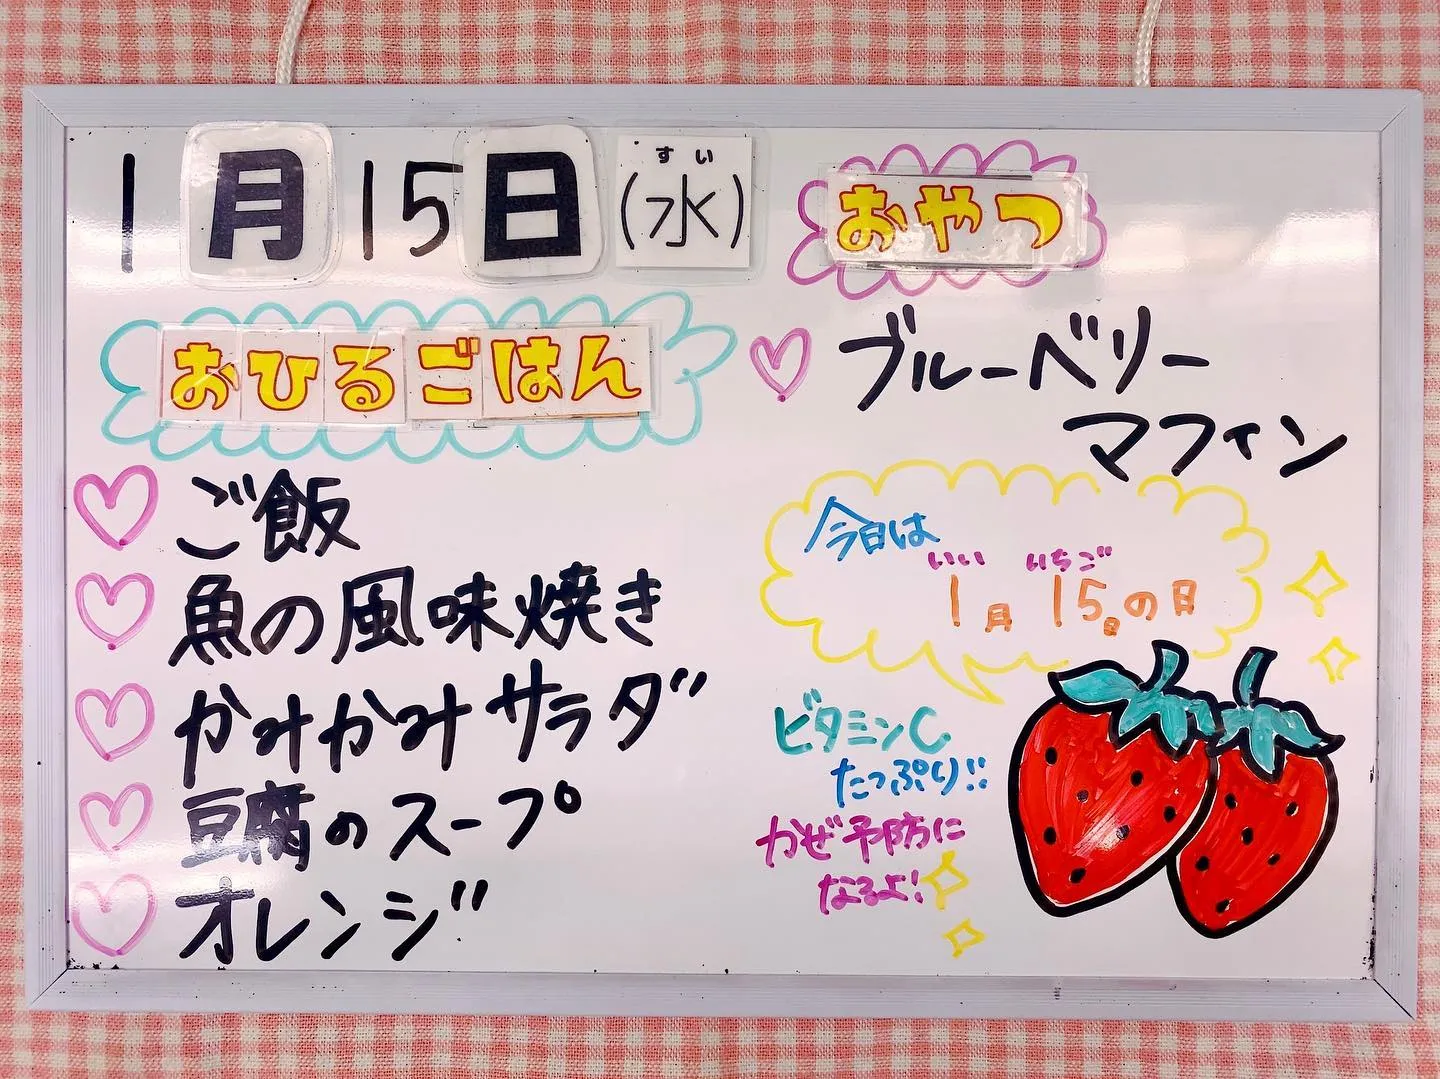 1月15日(水)
すい
おひるごはん
ご飯
魚の風味焼き
かみかみサラダ
豆腐のスープ
オレンジ
おやつ
ブルーベリー
マフィン
今日は
いい いちご
1月15日の日
ビタミンC
たっぷり!!
かぜ予防に
なるよ!